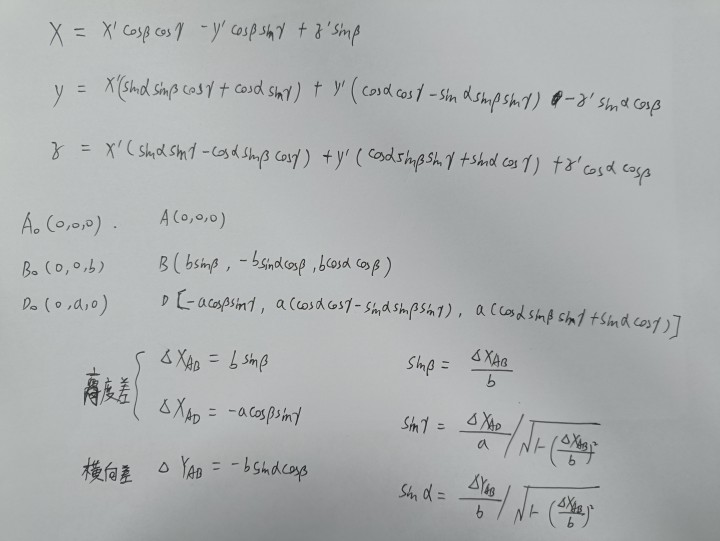 X = x'cosβcosγ - y'cosβsinγ + z'sinβ
y = x'(sinαsinβcosγ + cosαsinγ) + y'(cosαcosγ - sinαsinβsinγ) - z'sinαcosβ
z = x'(sinαsinγ - cosαsinβcosγ) + y'(cosαsinβsinγ + sinαcosγ) + z'cosαcosβ
A₀(0,0,0). A(0,0,0)
B₀(0,0,b) B(bsinβ, -bsinαcosβ, bcosαcosβ)
D₀(0,a,0) D[-acosβsinγ, a(cosαcosγ-sinαsinβsinγ), a(cosαsinβsinγ+sinαcosγ)]
高度差 { ΔX_AB = bsinβ sinβ = ΔX_AB / b
ΔX_AD = -acosβsinγ sinγ = ΔX_AD / a / √(1-(ΔX_AB / b)²)
横向差 ΔY_AB = -bsinαcosβ sinα = ΔY_AB / b / √(1-(ΔX_AB / b)²)